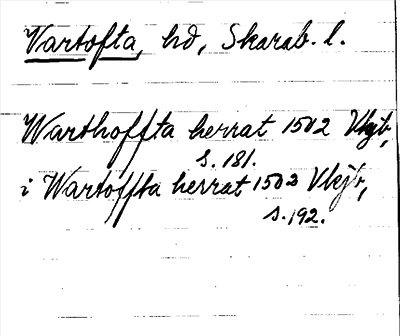 Vartofta, hd, Skarab. l.
Warthoffta herrat 1502 Vkjb,
s. 181.
i Wartoffta herrat 1503 Vkjb,
s. 192.